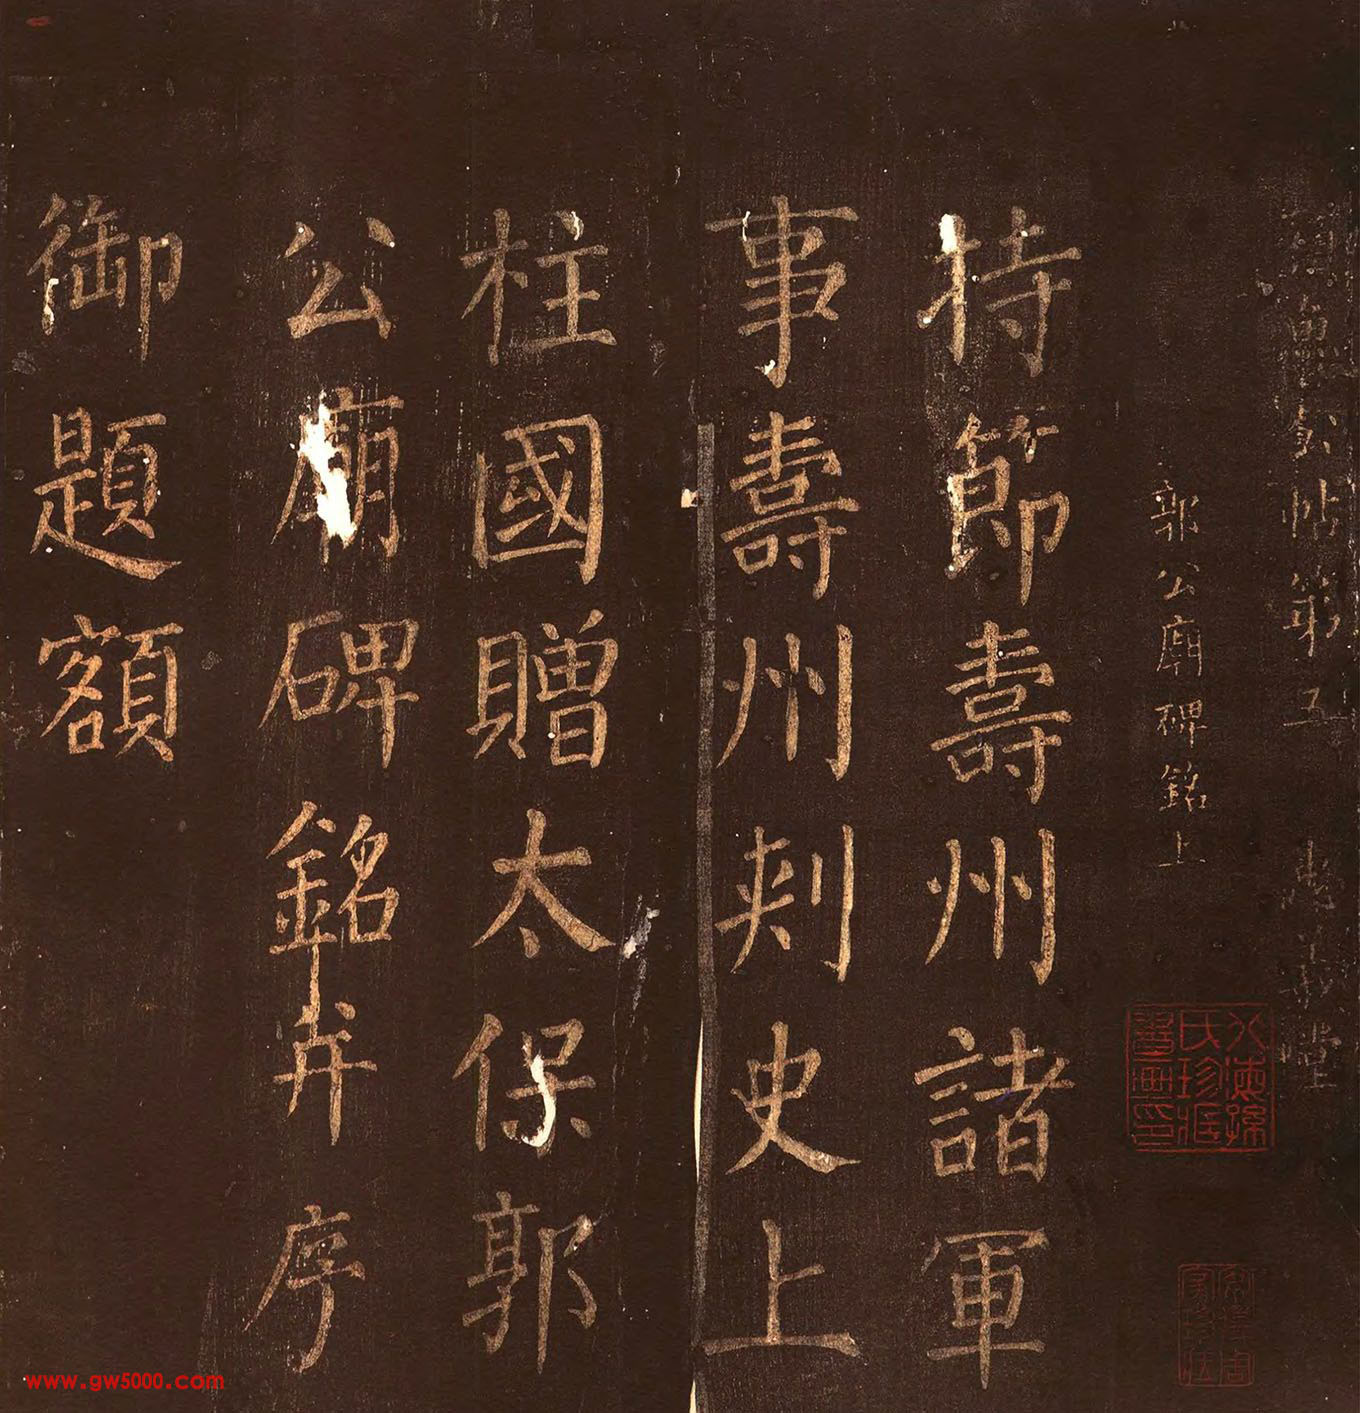 顏魯公帖第五 忠義堂
郭公廟碑銘上
持節壽州諸軍
事壽州刺史上
柱國贈太保郭
公廟碑銘并序
御題額
氏珍藏
書画印
www.gw5000.com